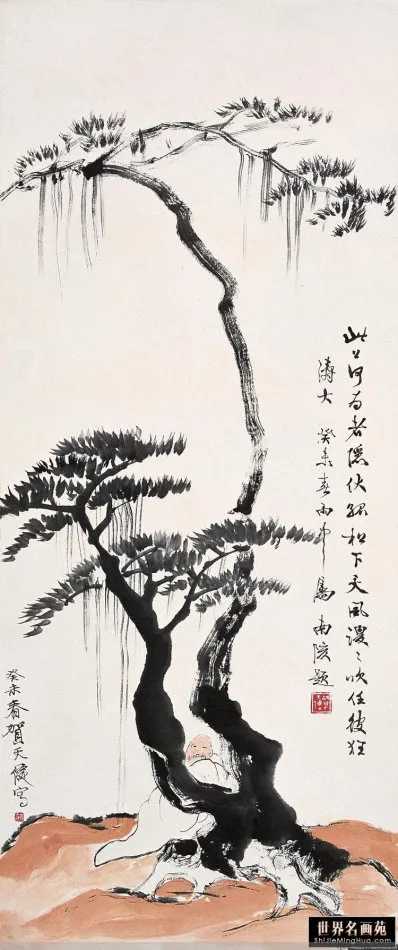 此公何为者隐伏孤松下天风谡谡吹任彼狂
涛大 癸未春雨中禺南陔题
癸未春贺天健写
世界名画苑
ShiJieMingHua.Com